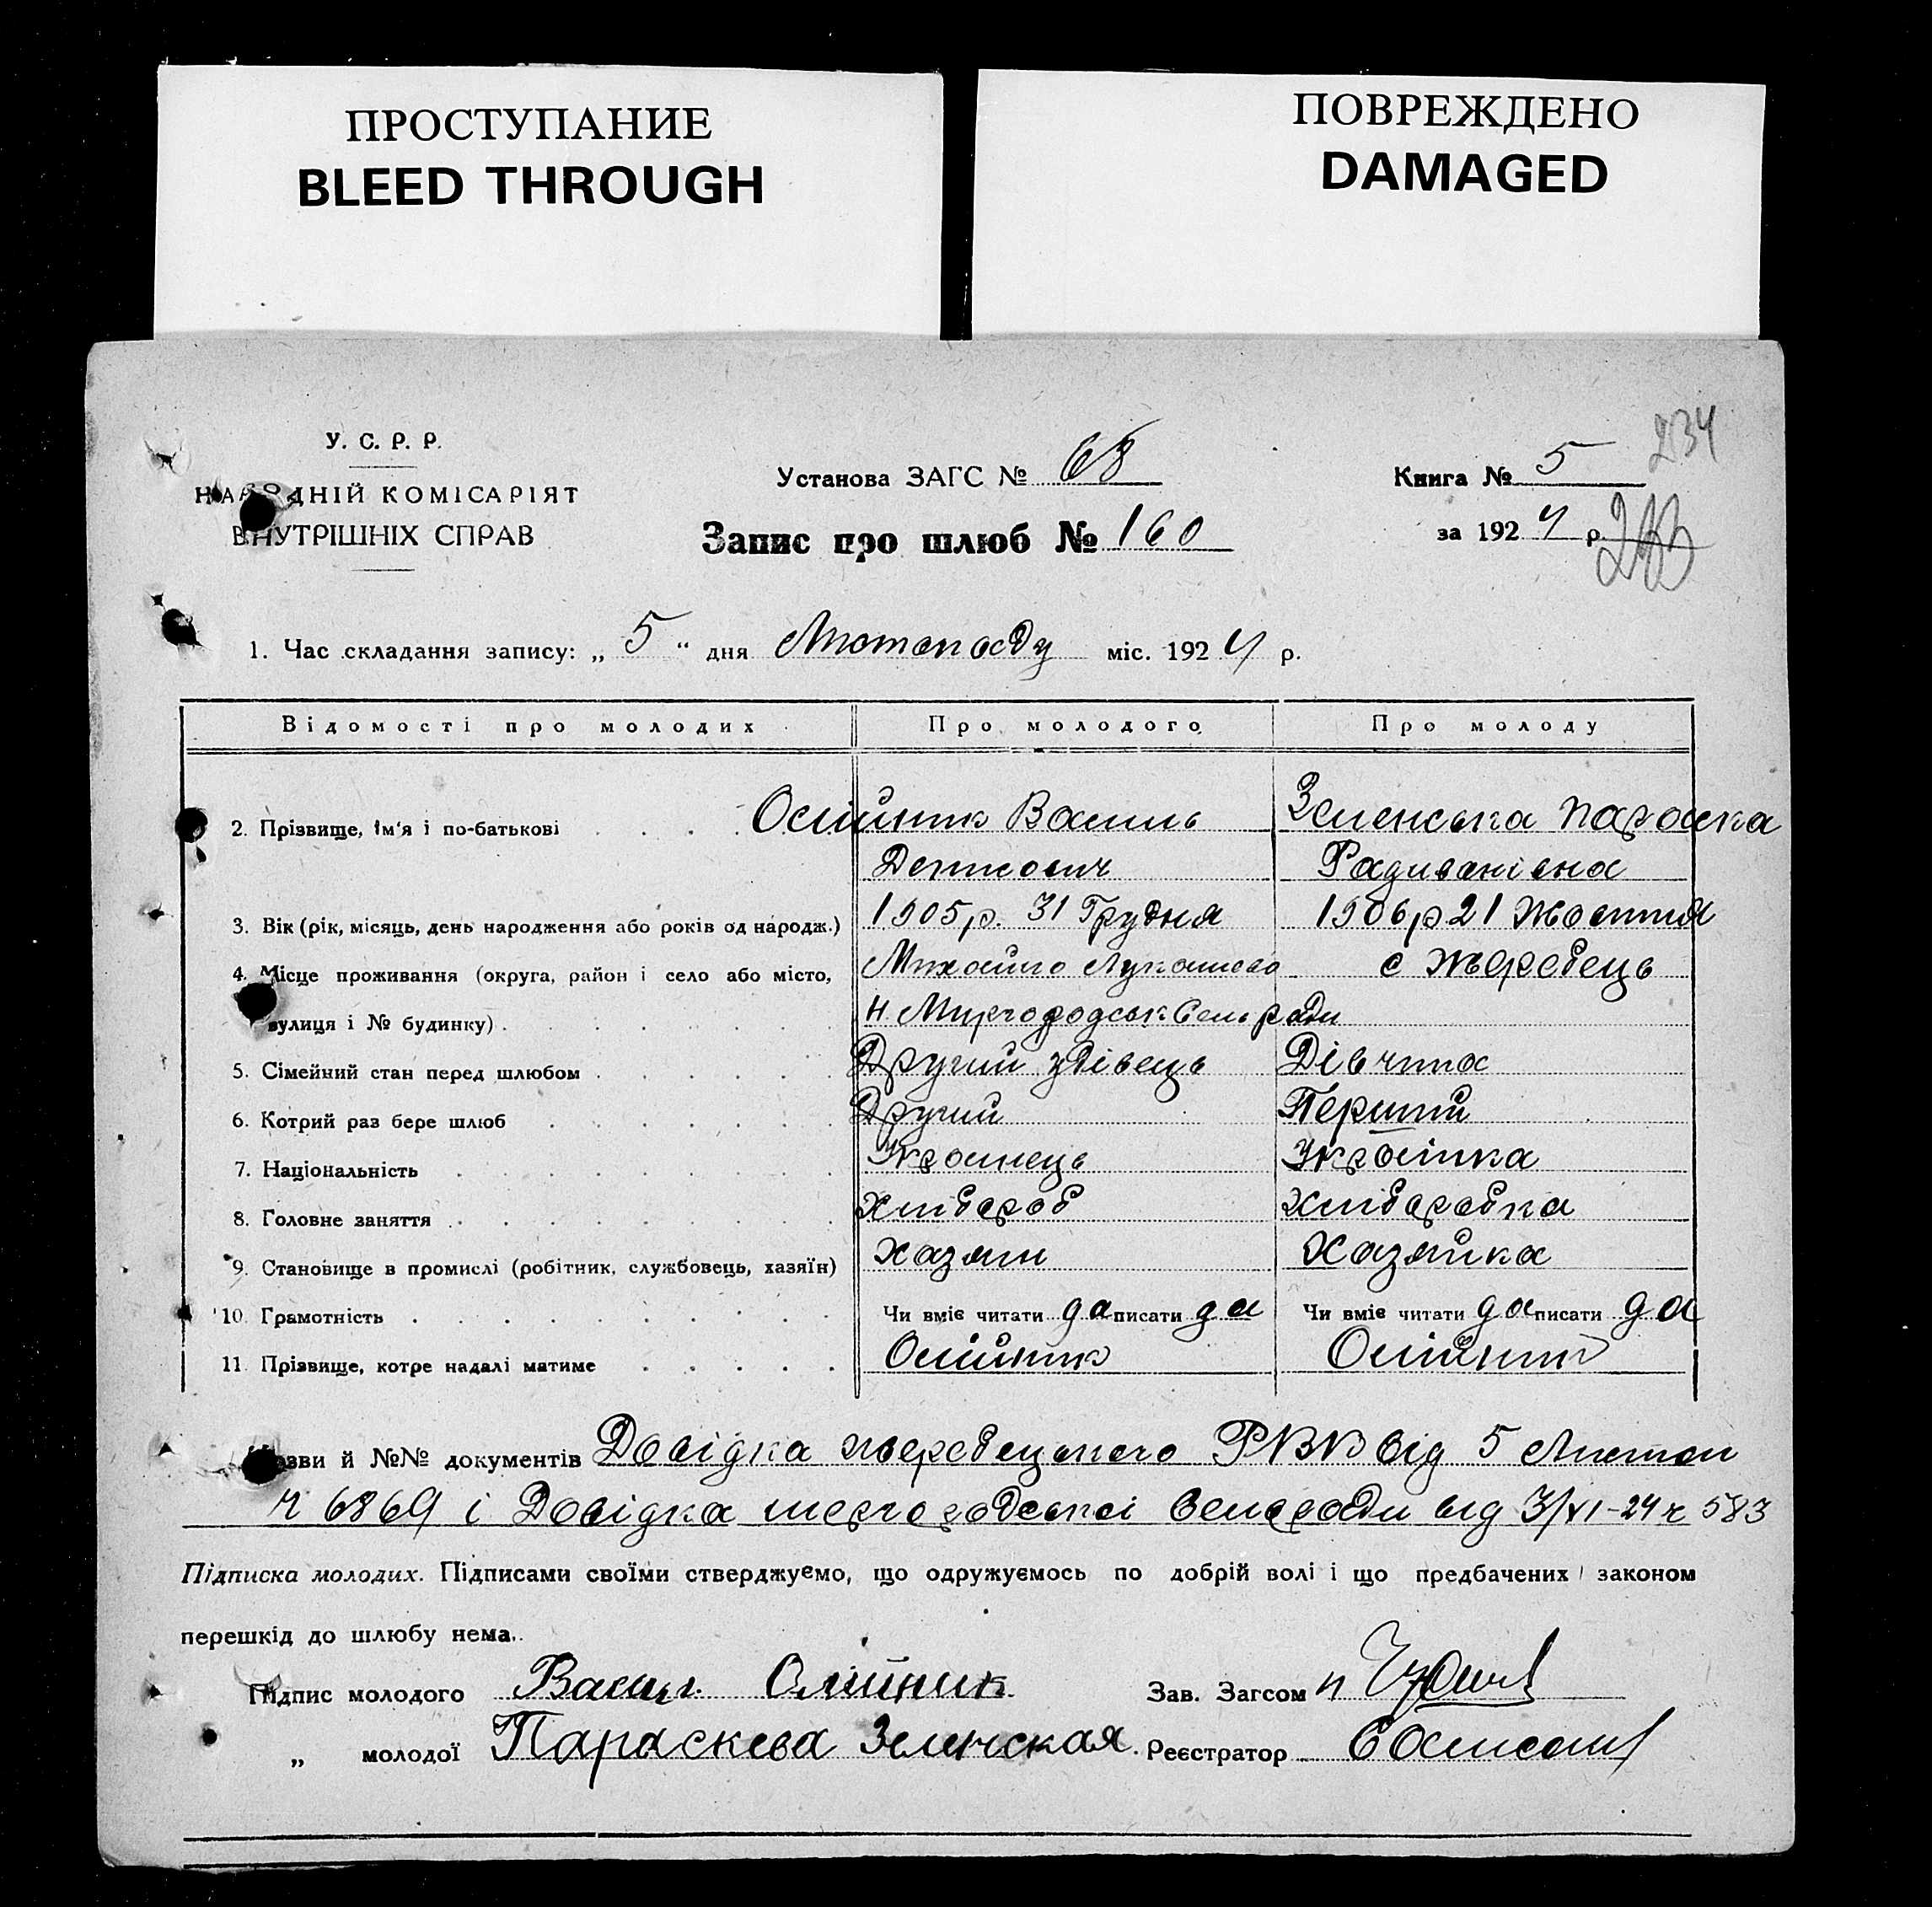 ПРОСТУПАНИЕ
BLEED THROUGH
ПОВРЕЖДЕНО
DAMAGED
234
У. С. Р. Р.
НАРОДНІЙ КОМІСАРІЯТ
ВНУТРІШНІХ СПРАВ
Установа ЗАГС № 68
Запис про шлюб № 160
Книга № 5
за 1924 р.
1. Час складання запису: „ 5 “ дня Листопаду міс. 1924 р.
Відомості про молодих Про молодого Про молоду
2. Прізвище, ім'я і по-батькові Олійник Василь Зеленська Параска
Радивонівна
3. Вік (рік, місяць, день народження або років од народж.) 1905 р. 31 Грудня 1906 р 21 Жовтня
4. Місце проживання (округа, район і село або місто, Михайло Лукашево с Жеребець
вулиця і № будинку) Н. Миргородськ Сельради
5. Сімейний стан перед шлюбом Другий удівець Дівчина
6. Котрий раз бере шлюб Другий Перший
7. Національність Украинець Украінка
8. Головне заняття Хлібороб Хліборобка
9. Становище в промислі (робітник, службовець, хазяїн) Хазяин Хазяйка
10. Грамотність Чи вміє читати да писати да Чи вміє читати да писати да
11. Прізвище, котре надалі матиме Олійник Олійник
Назви й №№ документів Довідка жеребецького РВК від 5 Листоп
ч 6869 і Довідка від 3/XI-24 ч 583
Підписка молодих. Підписами своїми стверджуємо, що одружуємось по добрій волі і що предбачених законом
перешкід до шлюбу нема.
Підпис молодого Васил Олійник Зав. Загсом
„ молодої Параскева Зеленская. Реєстратор